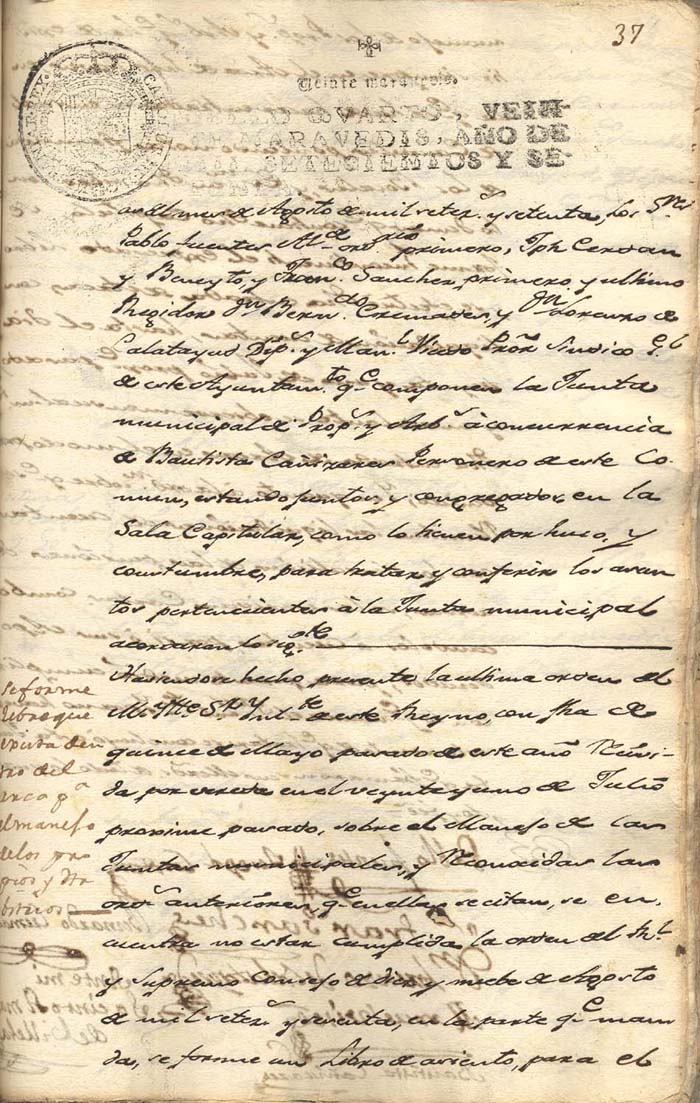 37
Veinte maravedis.
SELLO QVARTO, VEIN-
TE MARAVEDIS, AÑO DE
MIL SETECIENTOS Y SE-
TENTA.
CAROLUS
HISPANIAR. REX
mes de Agosto de mil setez.s y setenta, los S.res
Pablo fuentes Al.de ord.rio primero, Jph Cerdan
y Beneyto, y Fran.co Sanchez, primero, y ultimo
Regidor D.n Bern.do Cremades, y D.n Lorenzo de
Calatayud Dip.s y Man.l Pro.r Sindico G.l
de este Ayuntam.to q.e componen la Junta
municipal de Prop.s y Arb.s à concurrencia
de Bautista Cañizares Personero de este Co-
mun, estando juntos, y congregados, en la
Sala Capitular, como lo tienen por huso, y
costumbre, para tratar y conferir los asun
tos pertenecientes à la Junta municipal
acordaron lo sig.te
Haviendose hecho presente la ultima orden del
M. Ytte S.r Yn.te de este Reyno, con fha de
quince de Mayo pasado de este año Reciví-
da por vereda en el veynte y uno de Julio
proximo pasado, sobre el Manejo de las
Juntas municipales, y Reconocidas las
ord.s anteriores, q.e en ellas se citan, se en
cuentra no estar cumplida la orden del R.l
y Supremo Consejo de diez y nuebe de Agosto
de mil setez.s y sesenta, en la parte q.e man
da, se forme un Libro de asiento, para el
se forme
libro que
exista den
tro del
arca p.a
el manejo
de los pro
pios y Ar
bitrios